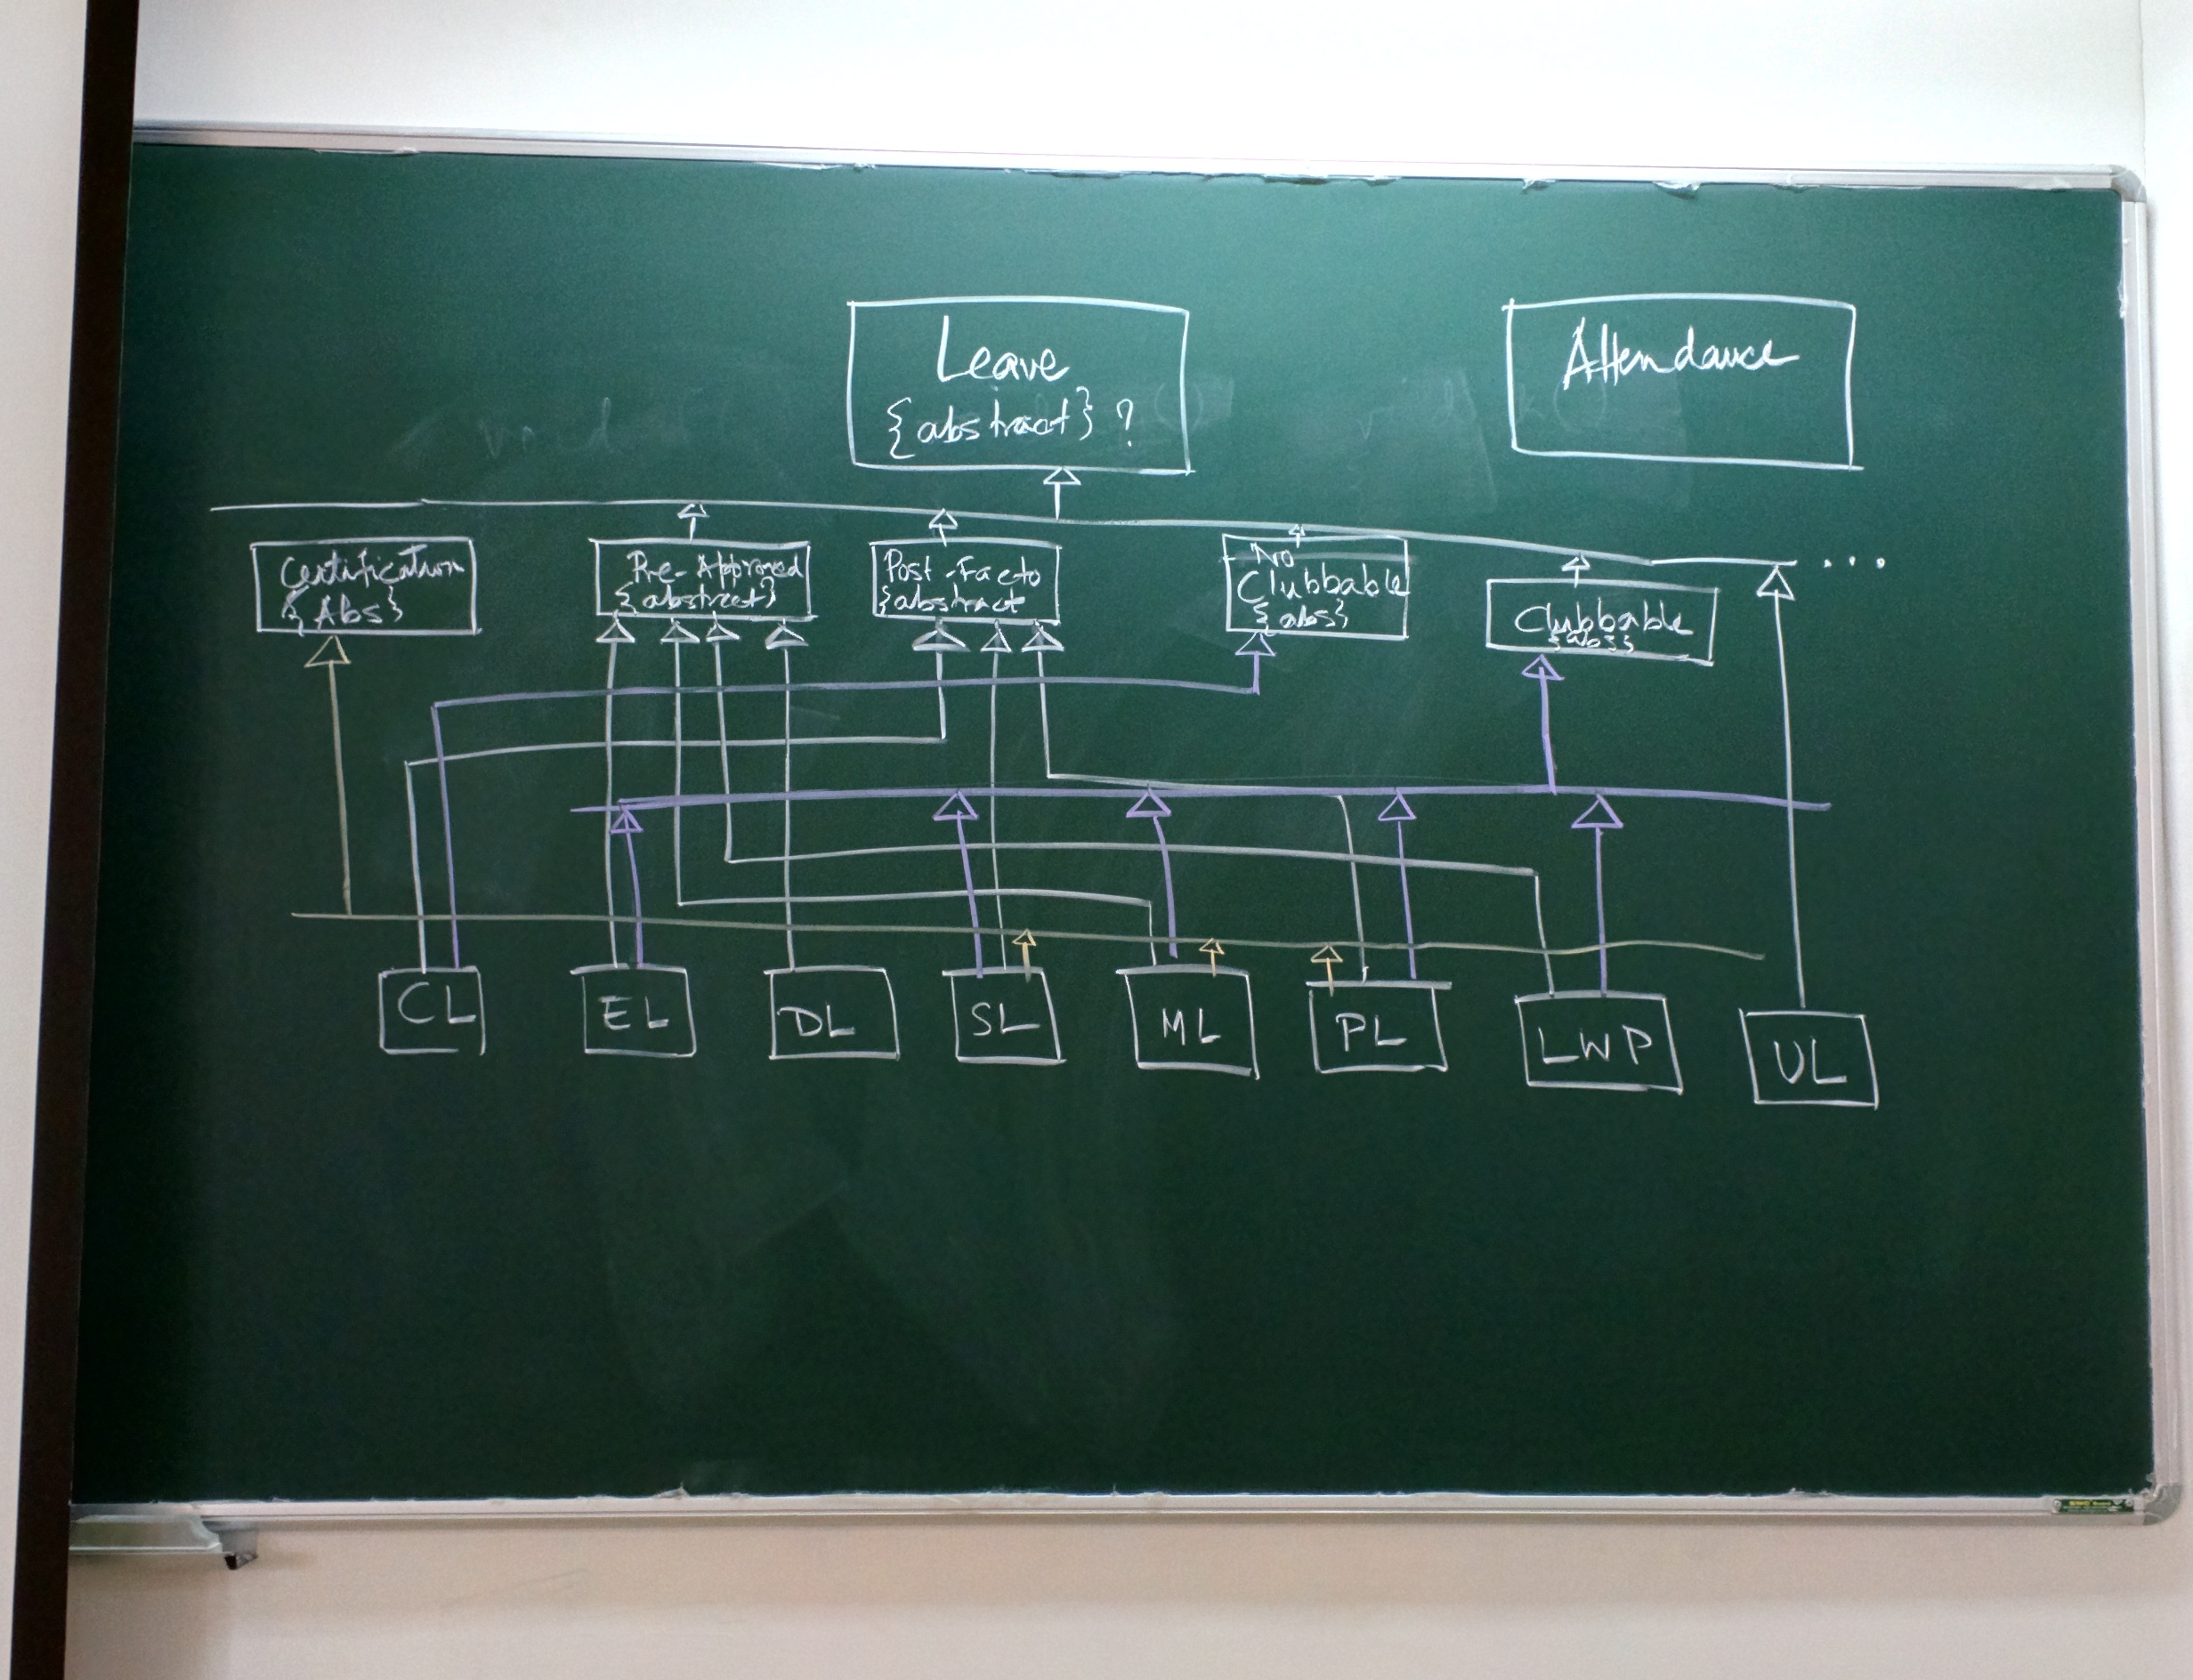 Leave
{abstract} ?
Attendance
Certification
{Abs}
Pre-Approved
{abstract}
Post-Facto
{abstract
No
Clubbable
{abs}
Clubbable
{abs}
...
CL
EL
DL
SL
ML
PL
LWP
UL